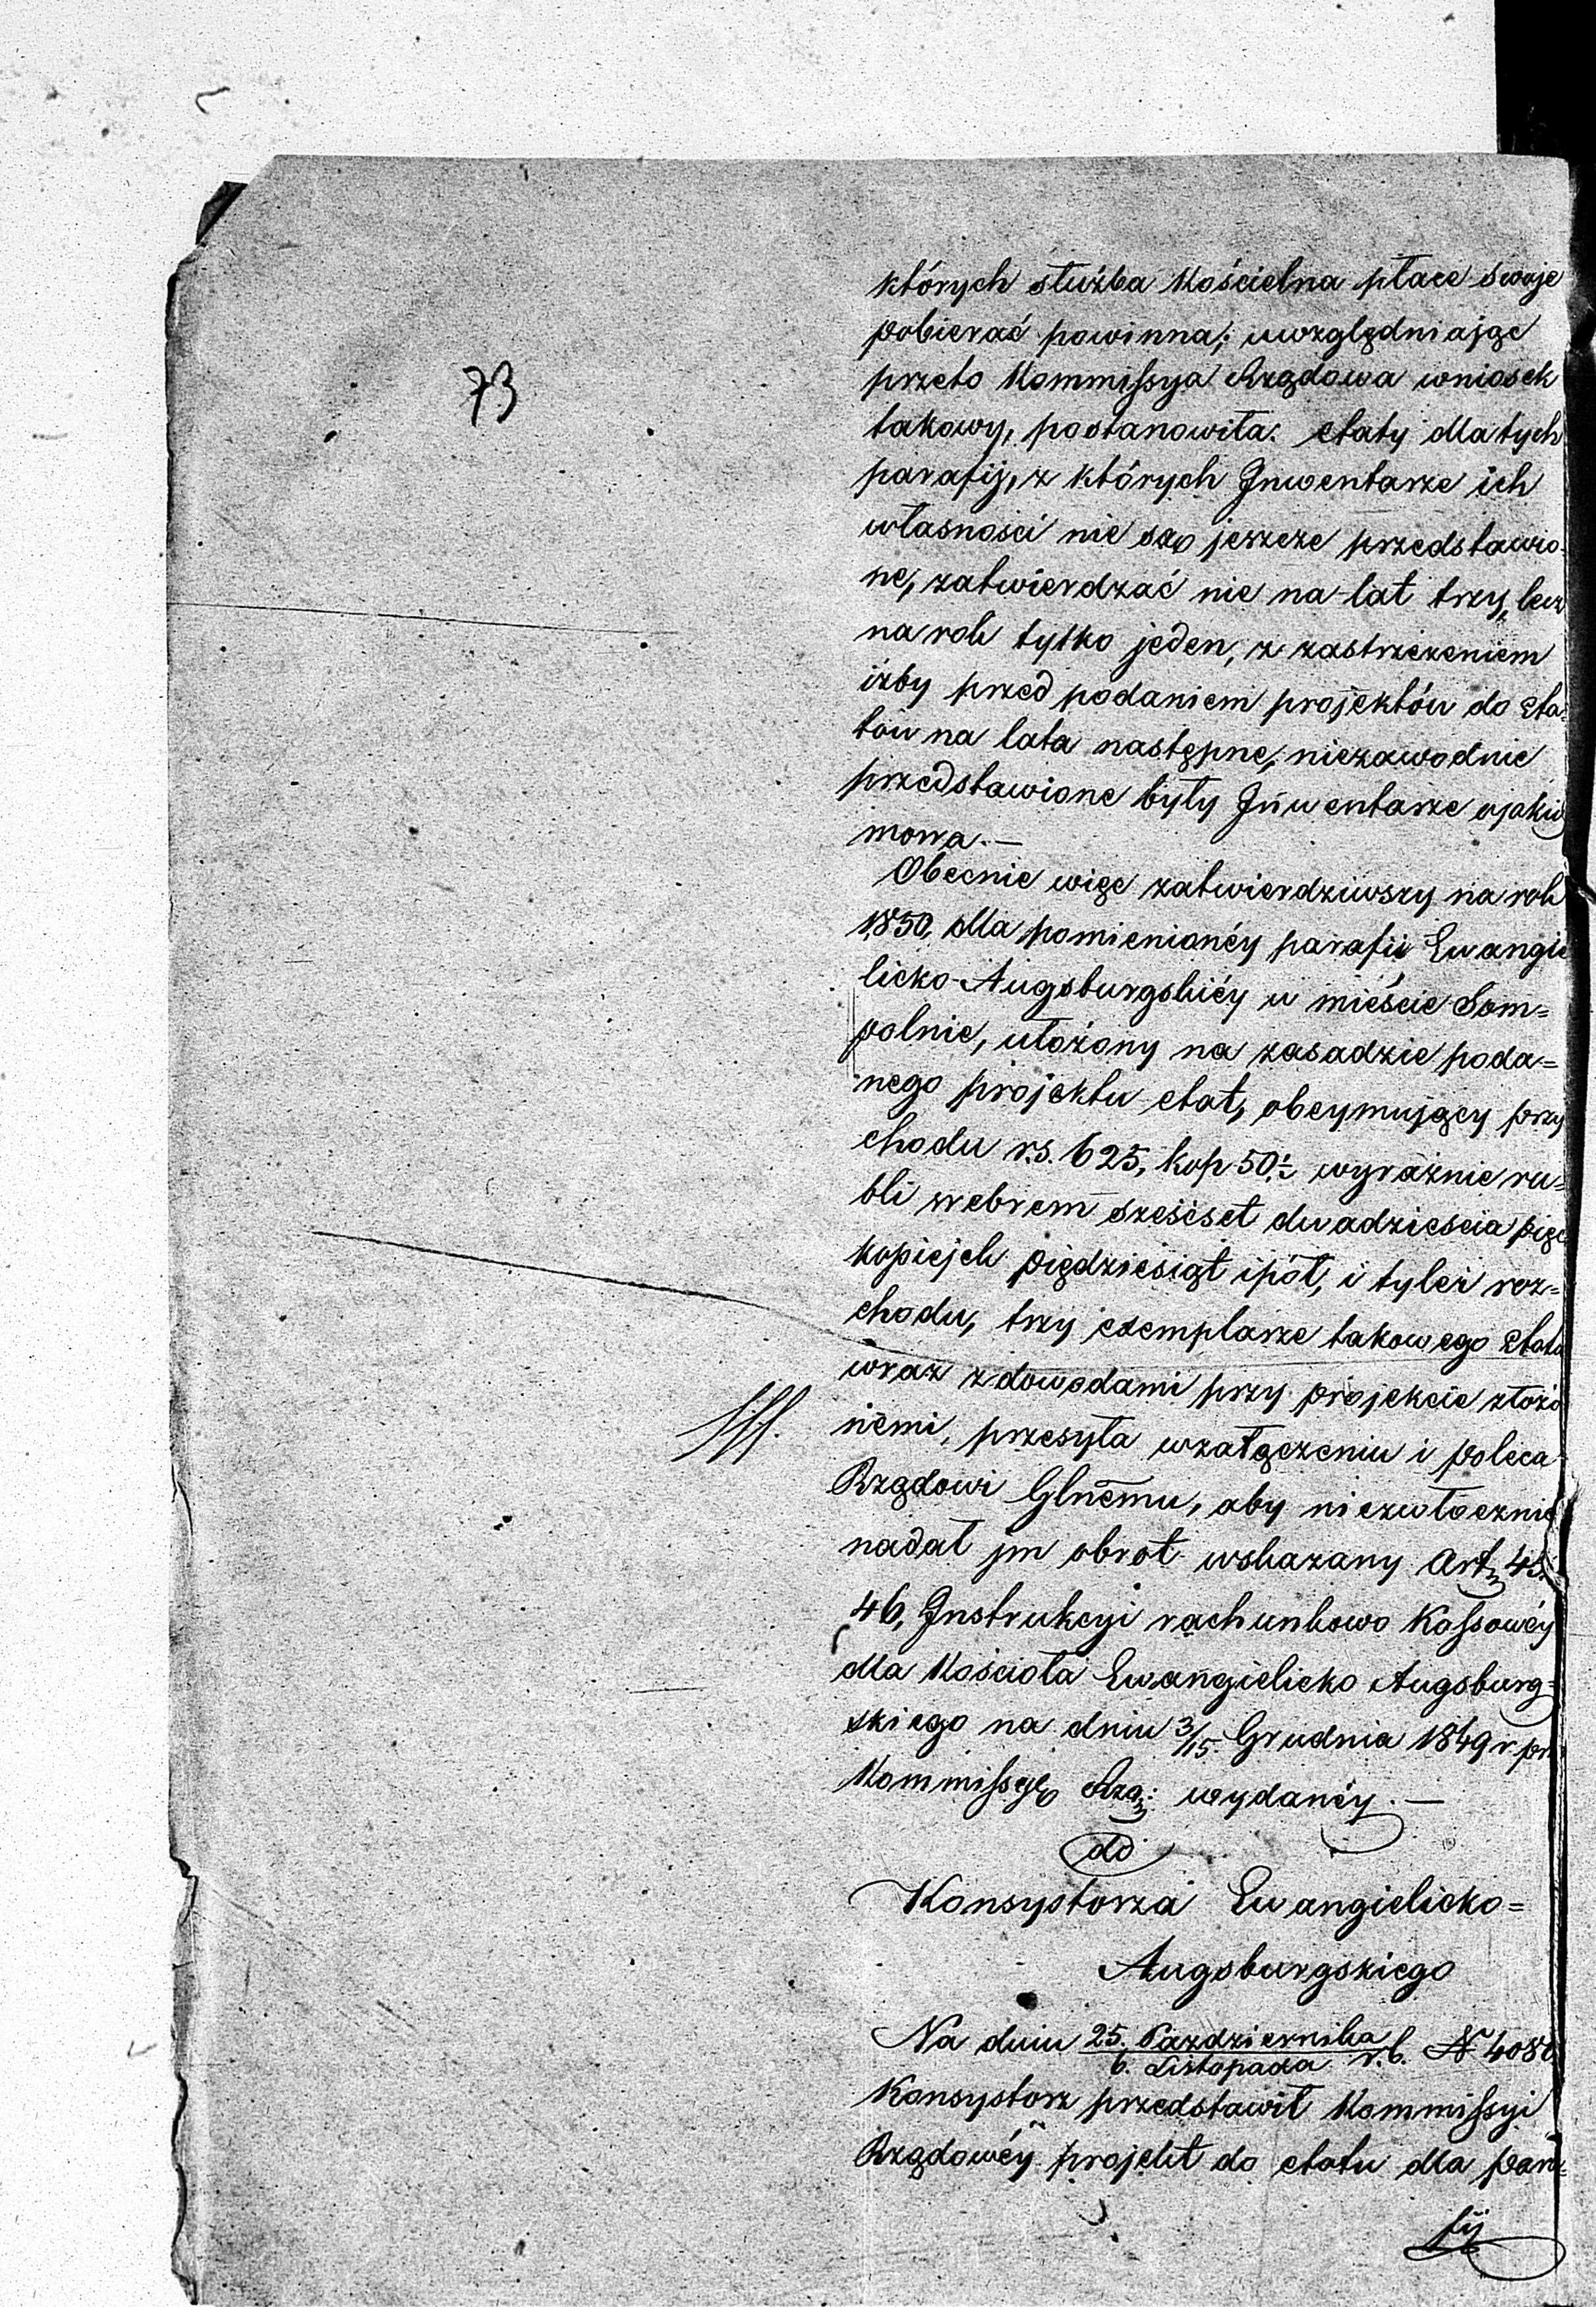 73
których służba Kościelna płace swoje
pobierać powinna; uwzględniając
przeto Kommissya Rządowa wniosek
takowy, postanowiła: etaty dla tych
parafij, z których Inwentarze ich
własności nie są jeszcze przedstawio-
ne, zatwierdzać nie na lat trzy, lecz
na rok tylko jeden, z zastrzeżeniem
iżby przed podaniem projektów do eta-
tów na lata następne, niezawodnie
przedstawione były Inwentarze o jakich
mowa.—
Obecnie więc zatwierdziwszy na rok
1850. dla pomienionéy parafii Ewangie
licko-Augsburgskiéy w mieście Som=
polnie, ułożony na zasadzie poda=
nego projektu etat, obeymujący przy
chodu r.s. 625, kop 50½ wyraźnie ru=
bli srebrem sześćset dwadzieścia pięć
kopiejek pięćdziesiąt i pół, i tyleż roz=
chodu, trzy exemplarze takowego etatu
wraz z dowodami przy projekcie złożo
nemi, przesyła w załączeniu i poleca
Rządowi Glnemu, aby niezwłocznie
nadał im obrot wskazany Art. 45.
46, Instrukcyi rachunkowo Kassowéy
dla Kościoła Ewangielicko Augsburg=
skiego na dniu 3/15 Grudnia 1849 r
Kommissyę Rzą: wydanéy.—
do
Konsystorza Ewangielicko=
Augsburgskiego
Na dniu 25. Października
6. Listopada r.b. N 4080
Konsystorz przedstawił Kommissyi
Rządowéy projekt do etatu dla para=
fij